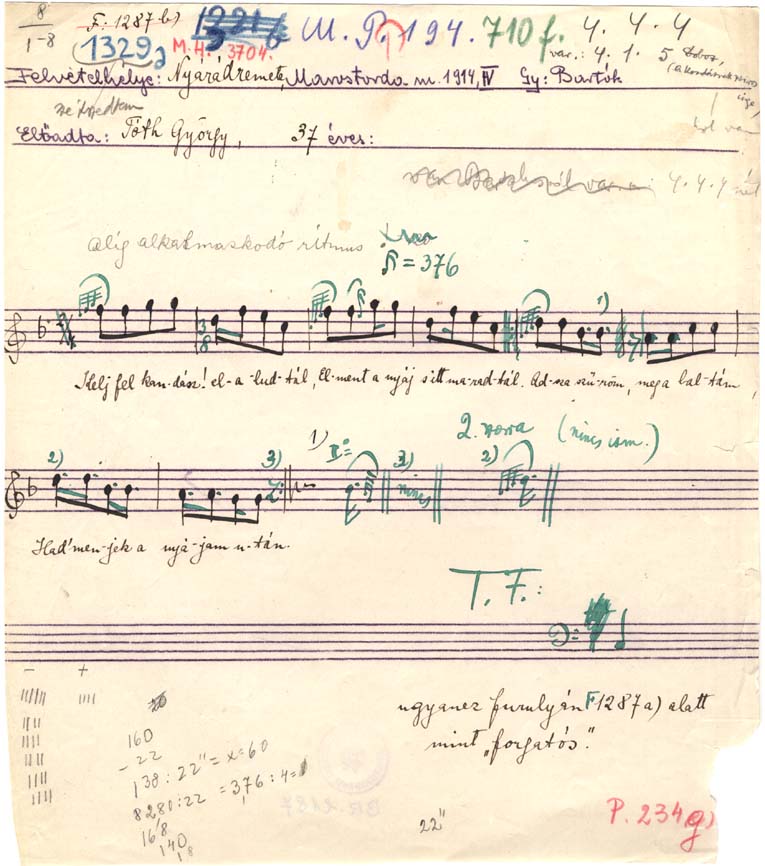 8
1-8
F. 1287 b)
1329a
M.H. 3704.
M. P. 194. 710 f. 4. 4. 4
var.: 4. 1. 5
Felvételhelye: Nyárádremete, Marostorda m. 1914, IV Gy: Bartók
Előadta: Tóth György, 37 éves:
4. 4. 4
alig alkalmaskodó ritmus
= 376
1)
3
8
Kelj fel kan-dász! el-a-lud-tál, El-ment a nyáj s itt ma-rad-tál. Ad-sza szű-röm, meg a bal-tám,
2. (nincs ism.)
2) 3) 1) 2)
nincs
Had' men-jek a nyá-jam u-tán.
T. F.:
- +
ugyanez furulyán F1287a) alatt
mint „forgatós".
160
- 22
138 : 22" = x = 60
8280 : 22 = 376 : 4 =
168
140
22"
P. 234g)